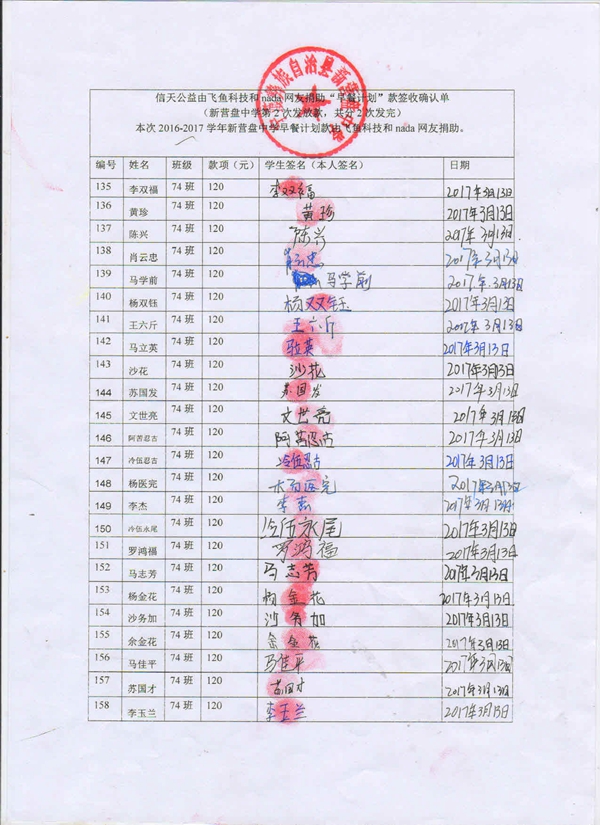 族自治县新营盘中
信天公益由飞鱼科技和 nada 网友捐助“早餐计划”款签收确认单
（新营盘中学第 2 次发放款，共分 2 次发完）
本次 2016-2017 学年新营盘中学早餐计划款由飞鱼科技和 nada 网友捐助。
编号 姓名 班级 款项（元） 学生签名（本人签名） 日期
135 李双福 74 班 120 李双福 2017年3月13日
136 黄珍 74 班 120 黄珍 2017年3月13日
137 陈兴 74 班 120 陈兴 2017年3月13日
138 肖云忠 74 班 120 2017年3月13日
139 马学前 74 班 120 马学前 2017年3月13日
140 杨双钰 74 班 120 杨双钰 2017年3月13日
141 王六斤 74 班 120 王六斤 2017年3月13日
142 马立英 74 班 120 2017年3月13日
143 沙花 74 班 120 沙花 2017年3月13日
144 苏国发 74 班 120 苏国发 2017年3月13日
145 文世亮 74 班 120 文世亮 2017年3月13日
146 阿苦忍古 74 班 120 阿苦忍古 2017年3月13日
147 冷伍忍古 74 班 120 冷伍忍古 2017年3月13日
148 杨医完 74 班 120 杨医完 2017年3月13日
149 李杰 74 班 120 李杰 2017年3月13日
150 冷伍永尾 74 班 120 冷伍永尾 2017年3月13日
151 罗鸿福 74 班 120 罗鸿福 2017年3月13日
152 马志芳 74 班 120 马志芳 2017年3月13日
153 杨金花 74 班 120 杨金花 2017年3月13日
154 沙务加 74 班 120 沙务加 2017年3月13日
155 余金花 74 班 120 余金花 2017年3月13日
156 马佳平 74 班 120 马佳平 2017年3月13日
157 苏国才 74 班 120 苏国才 2017年3月13日
158 李玉兰 74 班 120 李玉兰 2017年3月13日